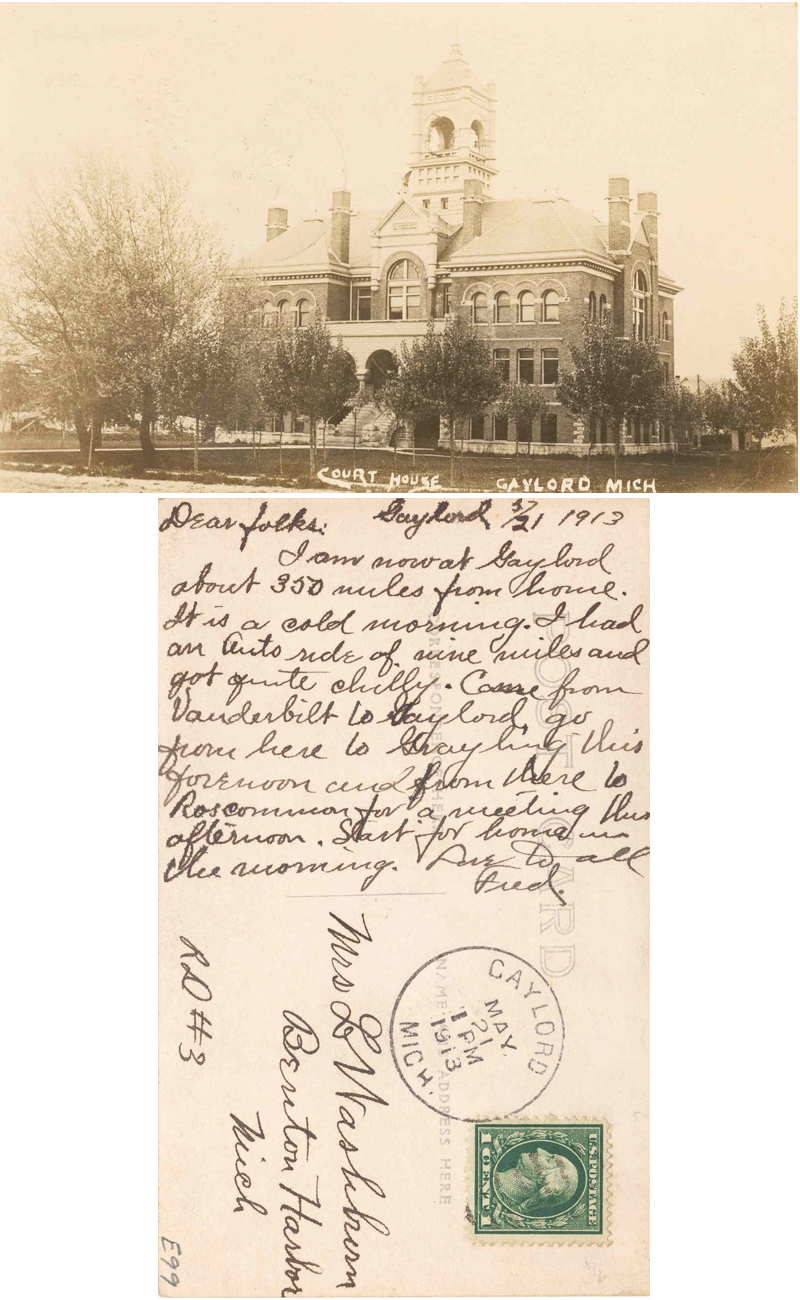 COURT HOUSE GAYLORD MICH
Dear folks: Gaylord, 5/21 1913
I am now at Gaylord
about 350 miles from home.
It is a cold morning. I had
an Auto ride of nine miles and
got quite chilly. Came from
Vanderbilt to Gaylord, go
from here to Grayling this
forenoon and from there to
Roscommon for a meeting this
afternoon. Start for home in
the morning. Love to all
Fred.
POST CARD
CORRESPONDENCE HERE
NAME AND ADDRESS HERE
GAYLORD
MAY.
21
1 PM
1913
MICH.
U.S. POSTAGE
1 CENT 1
Mrs L Washburn
Benton Harbor
Mich
RD #3
E99